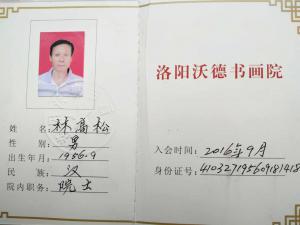 姓 名 林高松
性 别 男
出生年月 1956.9
民 族 汉
院内职务 院士
洛阳沃德书画院
入会时间：2016年9月
身份证号：410327195609181418